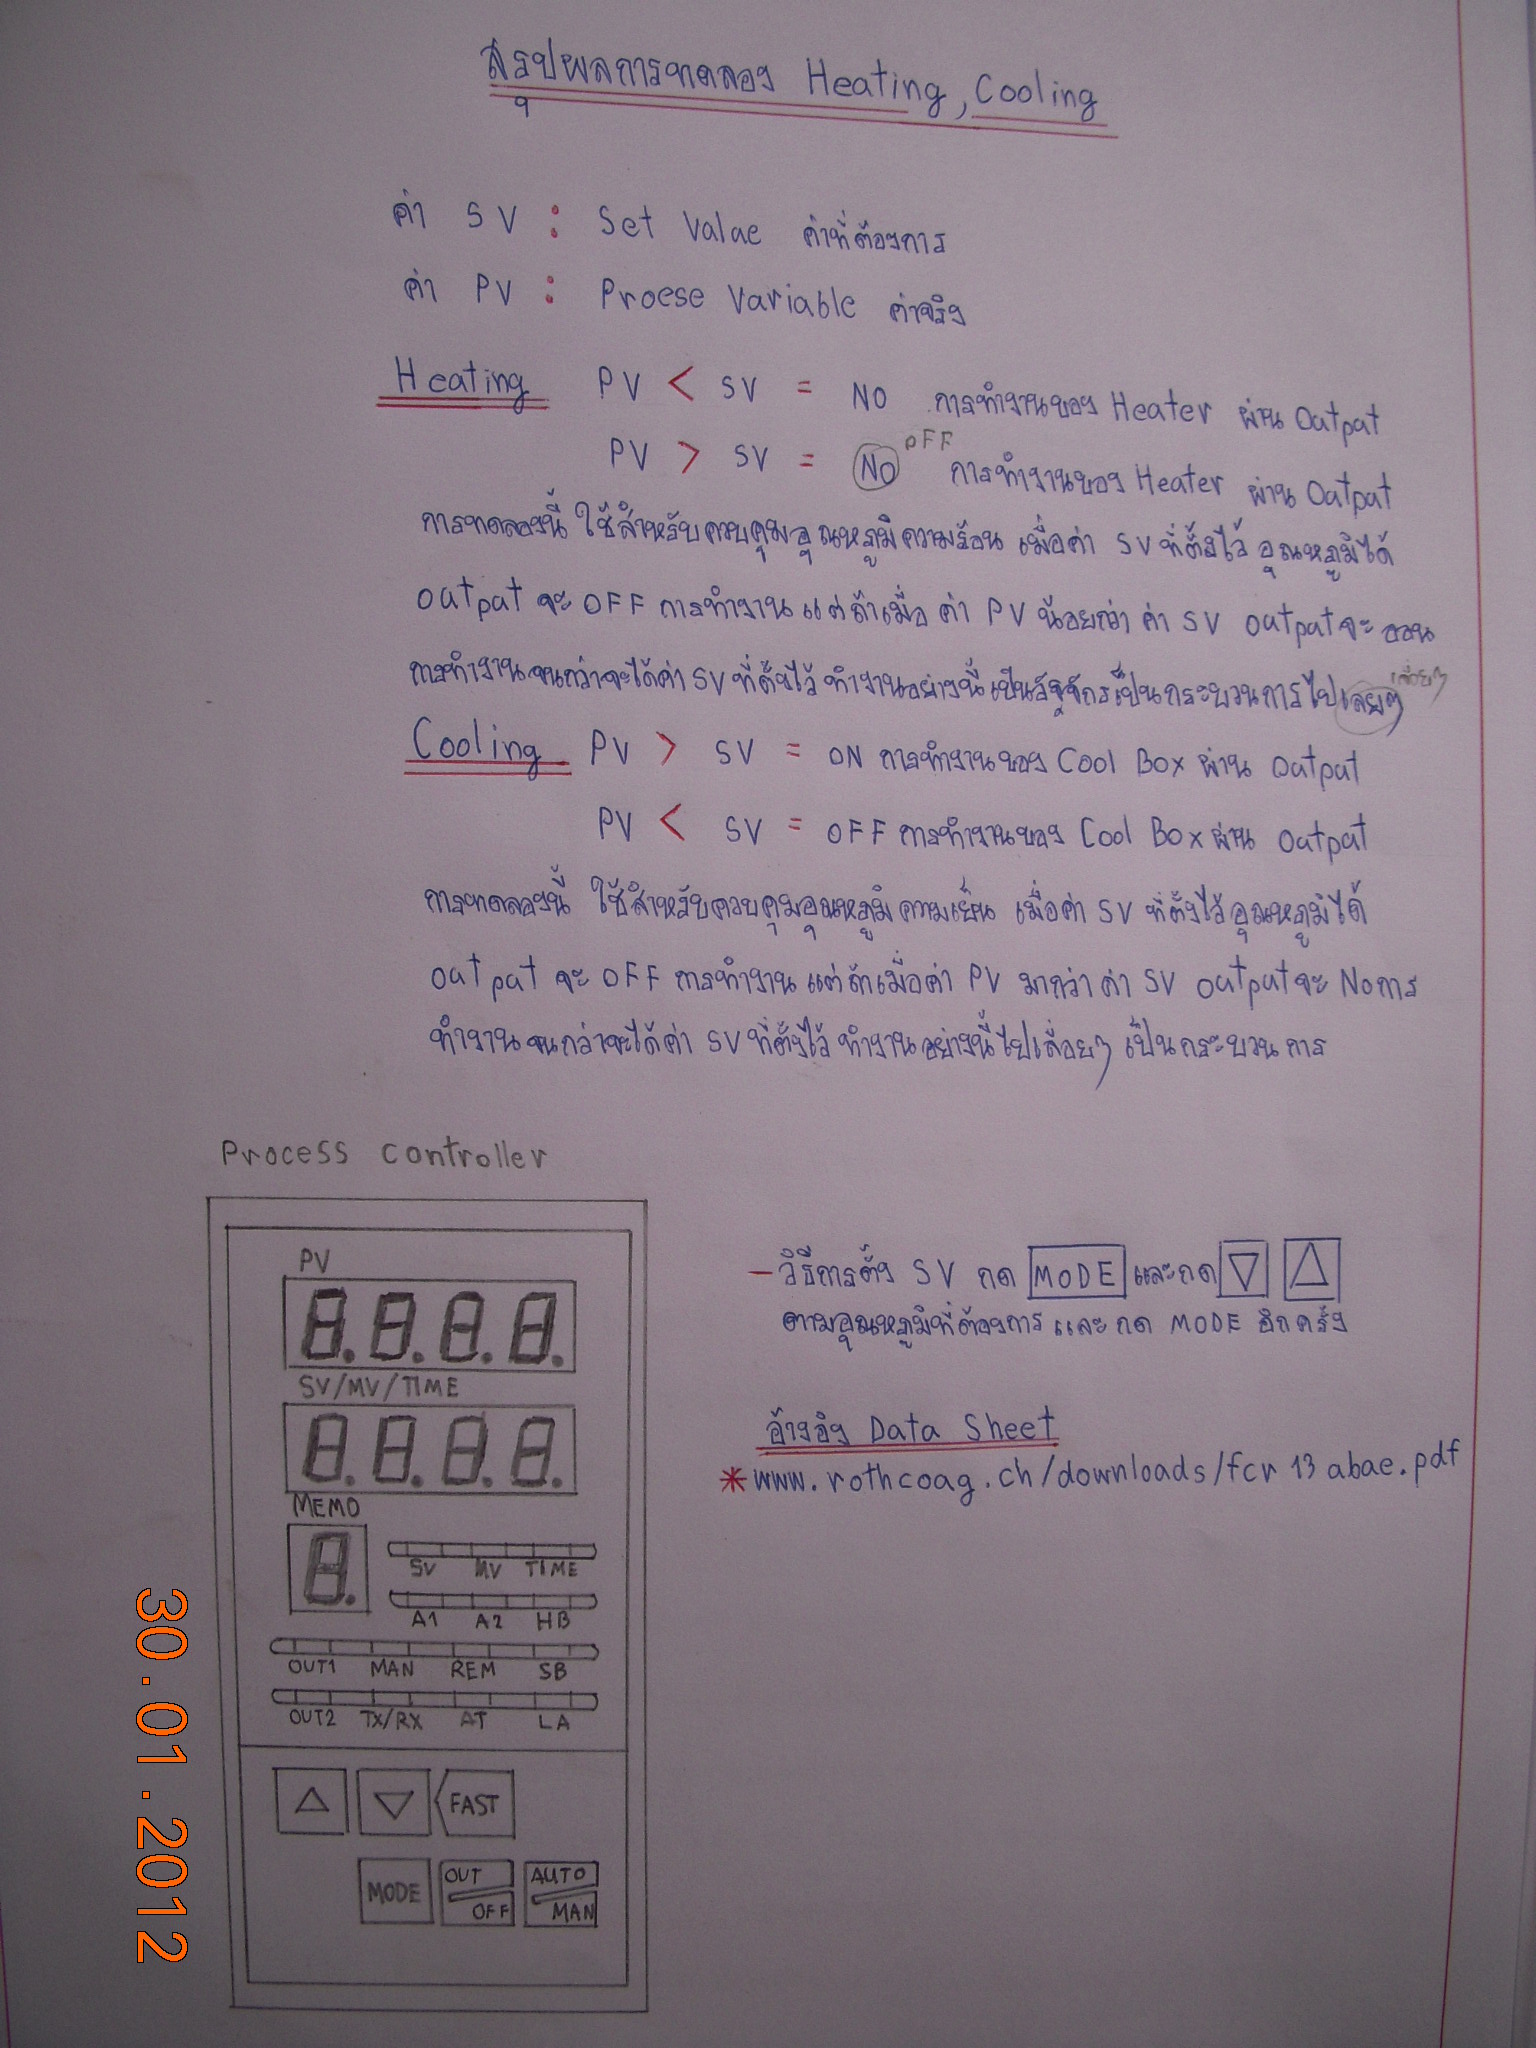 สรุปผลการทดลอง Heating, Cooling
ค่า SV : Set Value ค่าที่ต้องการ
ค่า PV : Proese Variable ค่าจริง
Heating PV < SV = NO การทำงานของ Heater ผ่าน Output
OFF
PV > SV = NO การทำงานของ Heater ผ่าน Output
การทดลองนี้ ใช้สำหรับควบคุมอุณหภูมิความร้อน เมื่อค่า SV ที่ตั้งไว้ อุณหภูมิได้
output จะ OFF การทำงาน แต่ถ้าเมื่อ ค่า PV น้อยกว่า ค่า SV output จะ ออน
เลื่อยๆ
การทำงานจนกว่าจะได้ค่า SV ที่ตั้งไว้ ทำงานอย่างนี้เป็นวัฐจักรเป็นกระบวนการไปเลยๆ
Cooling PV > SV = ON การทำงานของ Cool Box ผ่าน Output
PV < SV = OFF การทำงานของ Cool Box ผ่าน Output
การทดลองนี้ ใช้สำหรับควบคุมอุณหภูมิ ความเย็น เมื่อค่า SV ที่ตั้งไว้อุณหภูมิได้
output จะ OFF การทำงาน แต่ถ้าเมื่อค่า PV มากว่า ค่า SV output จะ No การ
ทำงาน จนกว่าจะได้ค่า SV ที่ตั้งไว้ ทำงานอย่างนี้ไปเลื่อยๆ เป็นกระบวนการ
Process Controller
PV
8.8.8.8.
SV/MV/TIME
8.8.8.8.
MEMO
8.
SV MV TIME
A1 A2 HB
OUT1 MAN REM SB
OUT2 TX/RX AT LA
△ ▽ FAST
MODE OUT/OFF AUTO/MAN
- วิธีการตั้ง SV กด MODE และกด ▽ △
ตามอุณหภูมิที่ต้องการ และ กด MODE อีกครั้ง
อ้างอิง Data Sheet
* www.rothcoag.ch/downloads/fcr13abae.pdf
30.01.2012